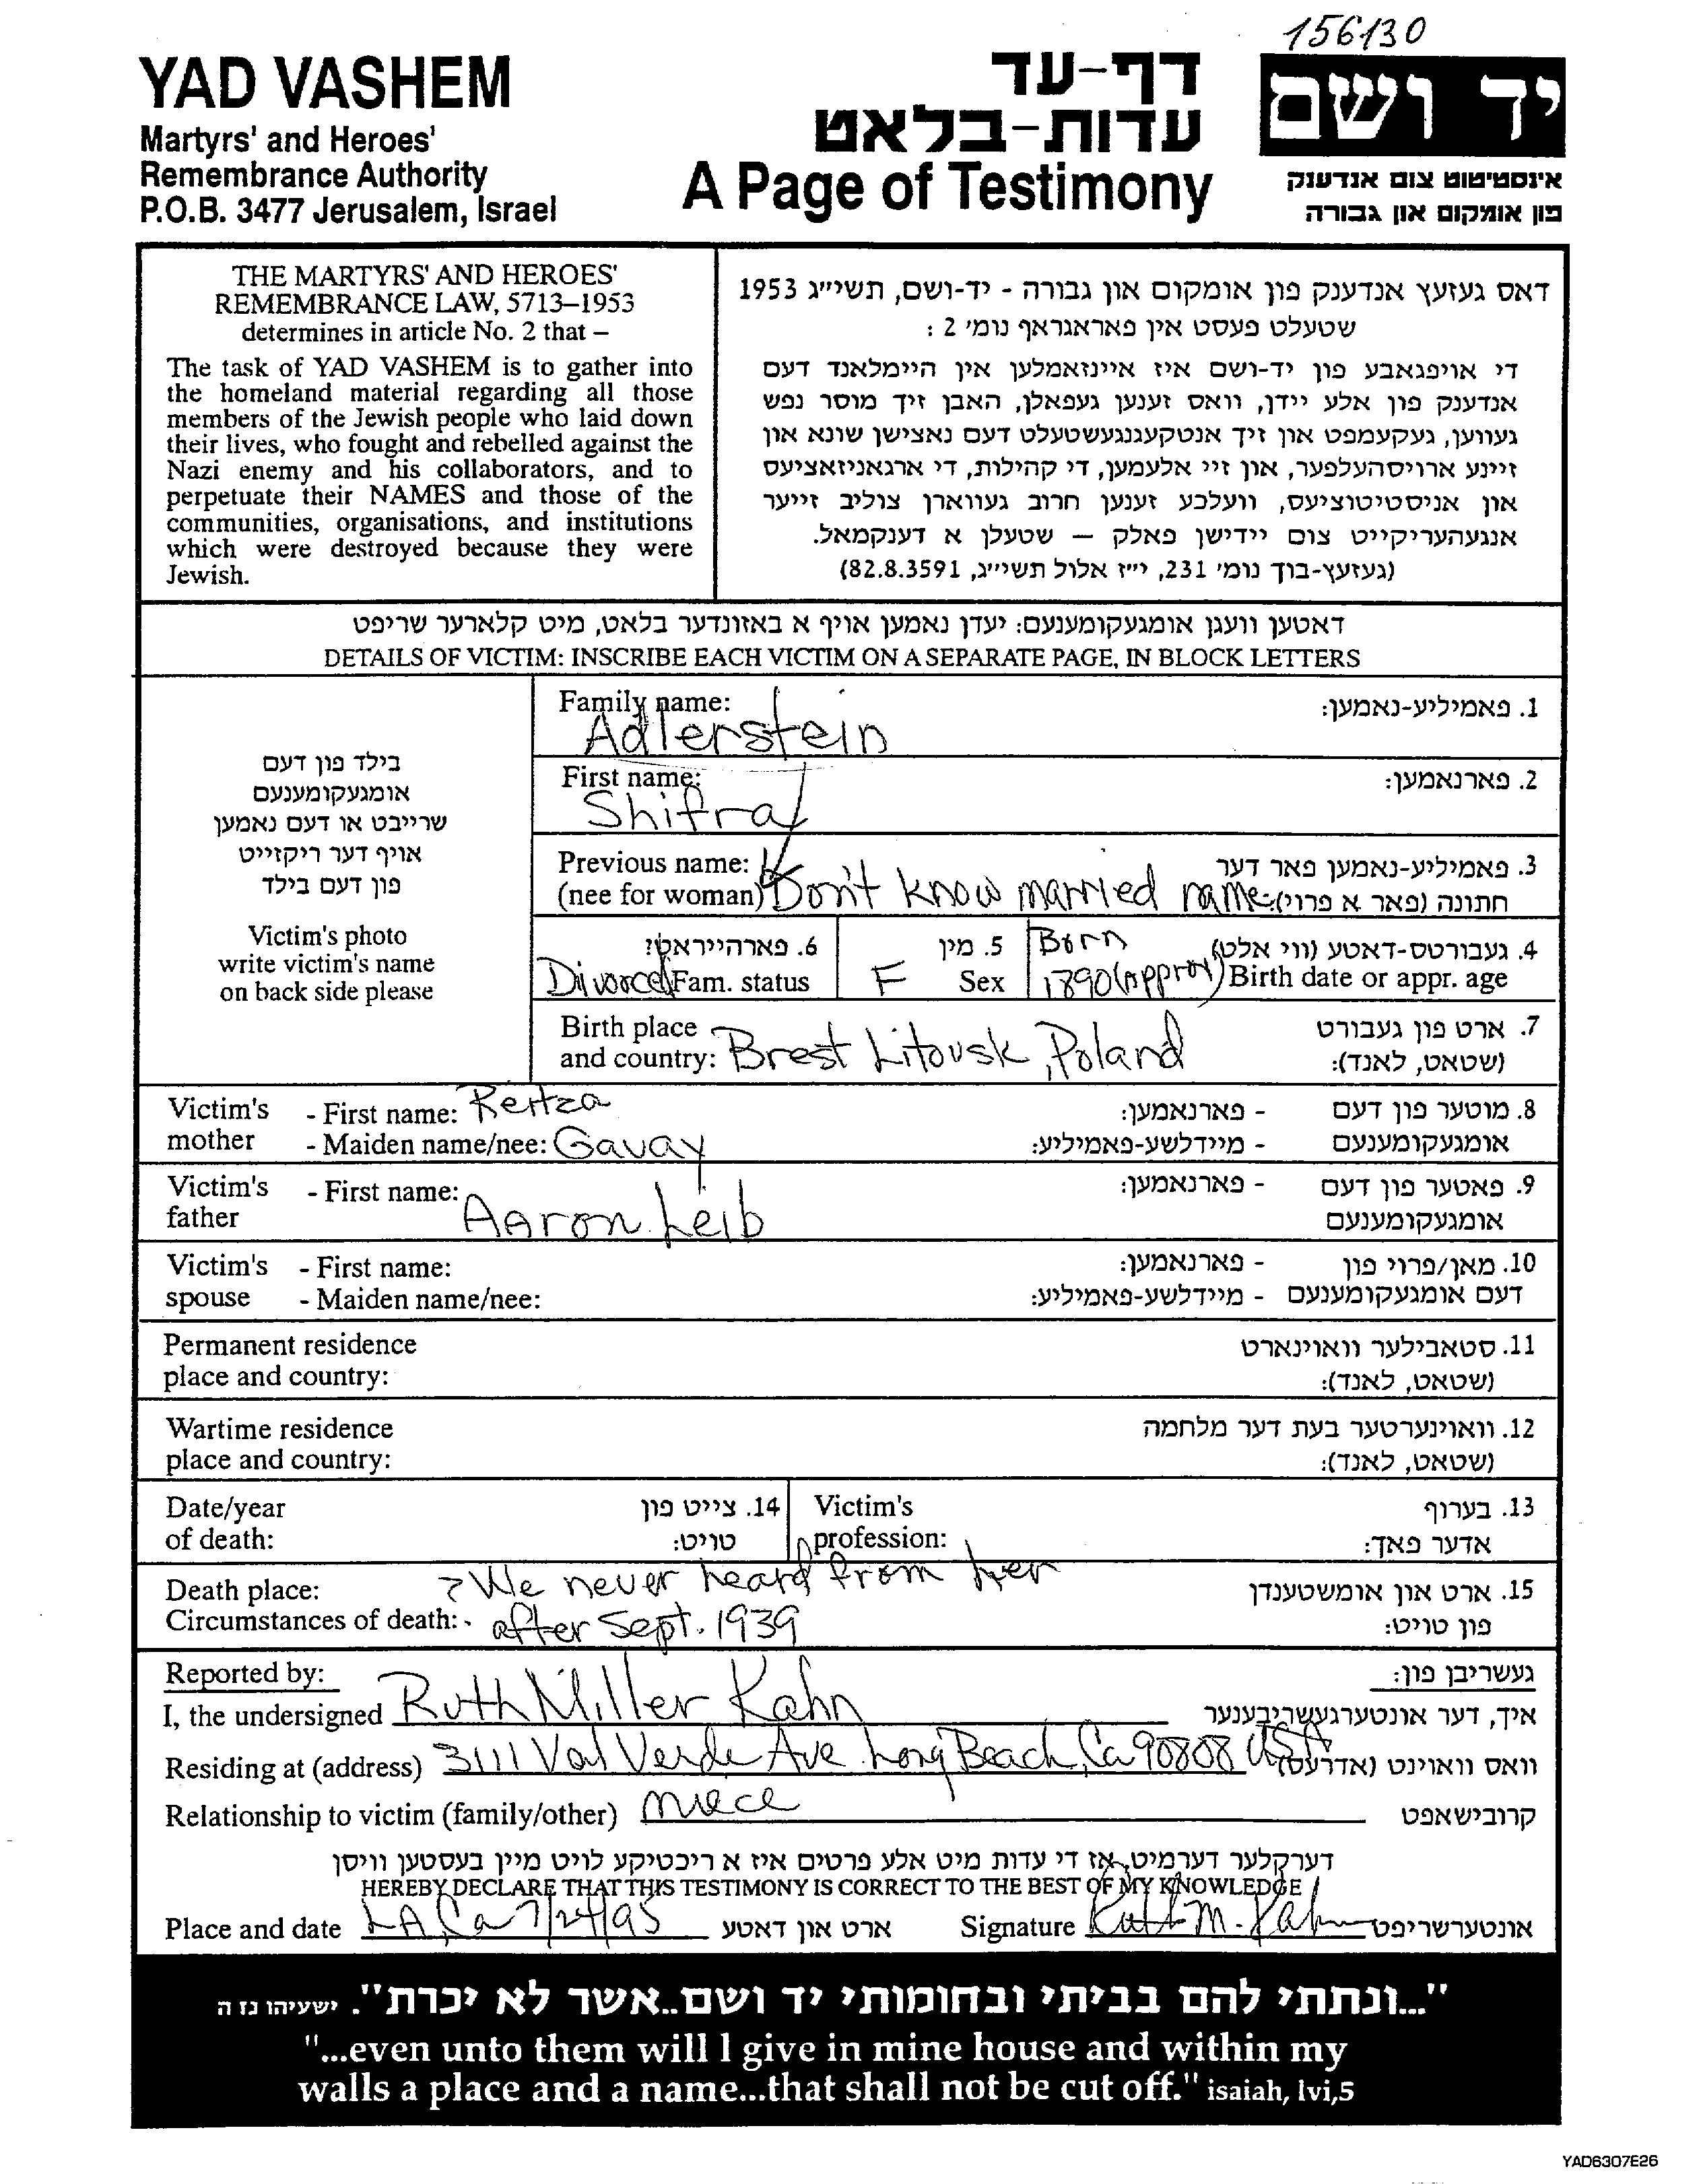 156130
YAD VASHEM
Martyrs' and Heroes'
Remembrance Authority
P.O.B. 3477 Jerusalem, Israel
דף-עד
עדות-בלאט
A Page of Testimony
יד ושם
אינסטיטוט צום אנדענק
פון אומקום און גבורה
THE MARTYRS' AND HEROES'
REMEMBRANCE LAW, 5713–1953
determines in article No. 2 that –
The task of YAD VASHEM is to gather into
the homeland material regarding all those
members of the Jewish people who laid down
their lives, who fought and rebelled against the
Nazi enemy and his collaborators, and to
perpetuate their NAMES and those of the
communities, organisations, and institutions
which were destroyed because they were
Jewish.
דאס געזעץ אנדענק פון אומקום און גבורה - יד-ושם, תשי״ג 1953
שטעלט פעסט אין פאראגראף נומ׳ 2 :
די אויפגאבע פון יד-ושם איז איינזאמלען אין היימלאנד דעם
אנדענק פון אלע יידן, וואס זענען געפאלן, האבן זיך מוסר נפש
געווען, געקעמפט און זיך אנטקעגנגעשטעלט דעם נאצישן שונא און
זיינע ארויסהעלפער, און זיי אלעמען, די קהילות, די ארגאניזאציעס
און אניסטיטוציעס, וועלכע זענען חרוב געווארן צוליב זייער
אנגעהעריקייט צום יידישן פאלק – שטעלן א דענקמאל.
(געזעץ-בוך נומ׳ 231, י״ז אלול תשי״ג, 82.8.3591)
דאטען וועגן אומגעקומענעם: יעדן נאמען אויף א באזונדער בלאט, מיט קלארער שריפט
DETAILS OF VICTIM: INSCRIBE EACH VICTIM ON A SEPARATE PAGE, IN BLOCK LETTERS
בילד פון דעם
אומגעקומענעם
שרייבט או דעם נאמען
אויף דער ריקזייט
פון דעם בילד
Victim's photo
write victim's name
on back side please
Family name: 1. פאמיליע-נאמען:
Adlerstein
First name: 2. פארנאמען:
Shifra
Previous name: 3. פאמיליע-נאמען פאר דער
(nee for woman) Don't know married name חתונה (פאר א פרוי):
6. פארהייראט? 5. מין Born 4. געבורטס-דאטע (ווי אלט)
Divorced Fam. status F Sex 1890 (Approx) Birth date or appr. age
Birth place 7. ארט פון געבורט
and country: Brest Litovsk, Poland (שטאט, לאנד):
Victim's - First name: Reitza - פארנאמען: 8. מוטער פון דעם
mother - Maiden name/nee: Gavay - מיידלשע-פאמיליע: אומגעקומענעם
Victim's - First name: - פארנאמען: 9. פאטער פון דעם
father Aaron Leib אומגעקומענעם
Victim's - First name: - פארנאמען: 10. מאן/פרוי פון
spouse - Maiden name/nee: - מיידלשע-פאמיליע: דעם אומגעקומענעם
Permanent residence 11. סטאבילער וואוינארט
place and country: (שטאט, לאנד):
Wartime residence 12. וואוינערטער בעת דער מלחמה
place and country: (שטאט, לאנד):
Date/year 14. צייט פון Victim's 13. בערוף
of death: טויט: profession: אדער פאך:
Death place: ? We never heard from her 15. ארט און אומשטענדן
Circumstances of death: - after Sept. 1939 פון טויט:
Reported by: געשריבן פון:
I, the undersigned Ruth Miller Kahn איך, דער אונטערגעשריבענער
Residing at (address) 3111 Val Verde Ave Long Beach, Ca 90808 USA וואס וואוינט (אדרעס)
Relationship to victim (family/other) niece קרובישאפט
דערקלער דערמיט, אז די עדות מיט אלע פרטים איז א ריכטיקע לויט מיין בעסטען וויסן
HEREBY DECLARE THAT THIS TESTIMONY IS CORRECT TO THE BEST OF MY KNOWLEDGE
Place and date LA, Ca 7/24/95 ארט און דאטע Signature Ruth M. Kahn אונטערשריפט
"...ונתתי להם בביתי ובחומותי יד ושם..אשר לא יכרת". ישעיהו נז ה
"...even unto them will I give in mine house and within my
walls a place and a name...that shall not be cut off." isaiah, lvi,5
YAD6307E26